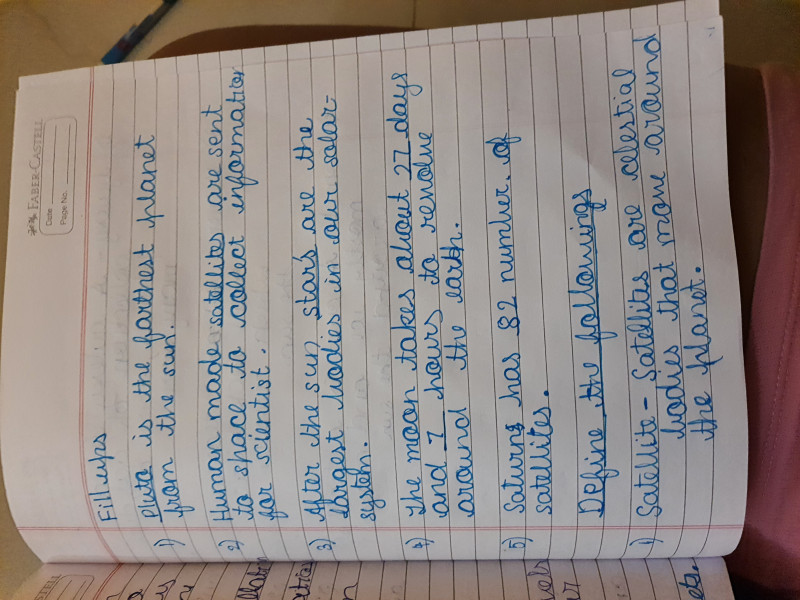 FABER-CASTELL
Date
Page No.
Fill ups
1) Pluto is the farthest planet
from the sun.
2) Human made satellites are sent
to space to collect information
for scientist.
3) After the sun stars are the
largest bodies in our solar-
system.
4) The moon takes about 27 days
and 7 hours to revolve
around the earth.
5) Saturng has 82 number of
satellites.
Define the followings
1) Satellite - Satellites are celestial
bodies that move around
the planet.